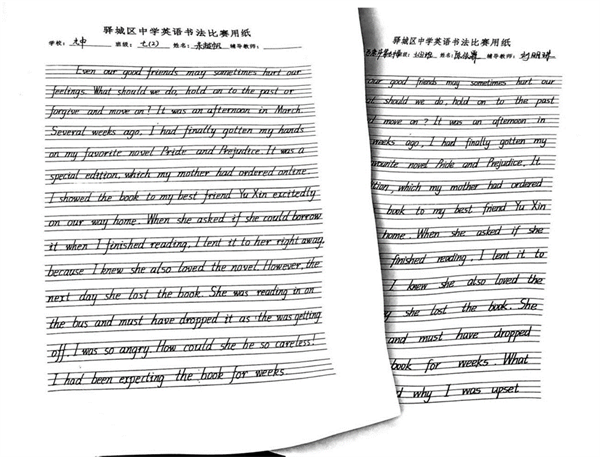 驿城区中学英语书法比赛用纸
学校: 班级: 七(2) 姓名: 辅导教师:
Even our good friends may sometimes hurt our
feelings. What should we do, hold on to the past or
forgive and move on? It was an afternoon in March.
Several weeks ago, I had finally gotten my hands
on my favorite novel Pride and Prejudice. It was a
special edition, which my mother had ordered online.
I showed the book to my best friend Yu Xin excitedly
on our way home. When she asked if she could borrow
it when I finished reading, I lent it to her right away,
because I knew she also loved the novel. However, the
next day she lost the book. She was reading in on
the bus and must have dropped it as the was getting
off. I was so angry. How could she be so careless!
I had been expecting the book for weeks.
驿城区中学英语书法比赛用纸
姓名: 辅导教师: 刘明琪
our good friends may sometimes hurt our
should we do, hold on to the past
move on? It was an afternoon in
weeks ago, I had finally gotten my
novel Pride and Prejudice. It
which my mother had ordered
book to my best friend Yu Xin
home. When she asked if she
finished reading, I lent it to
I knew she also loved the
she lost the book. She
and must have dropped
book for weeks. What
why I was upset